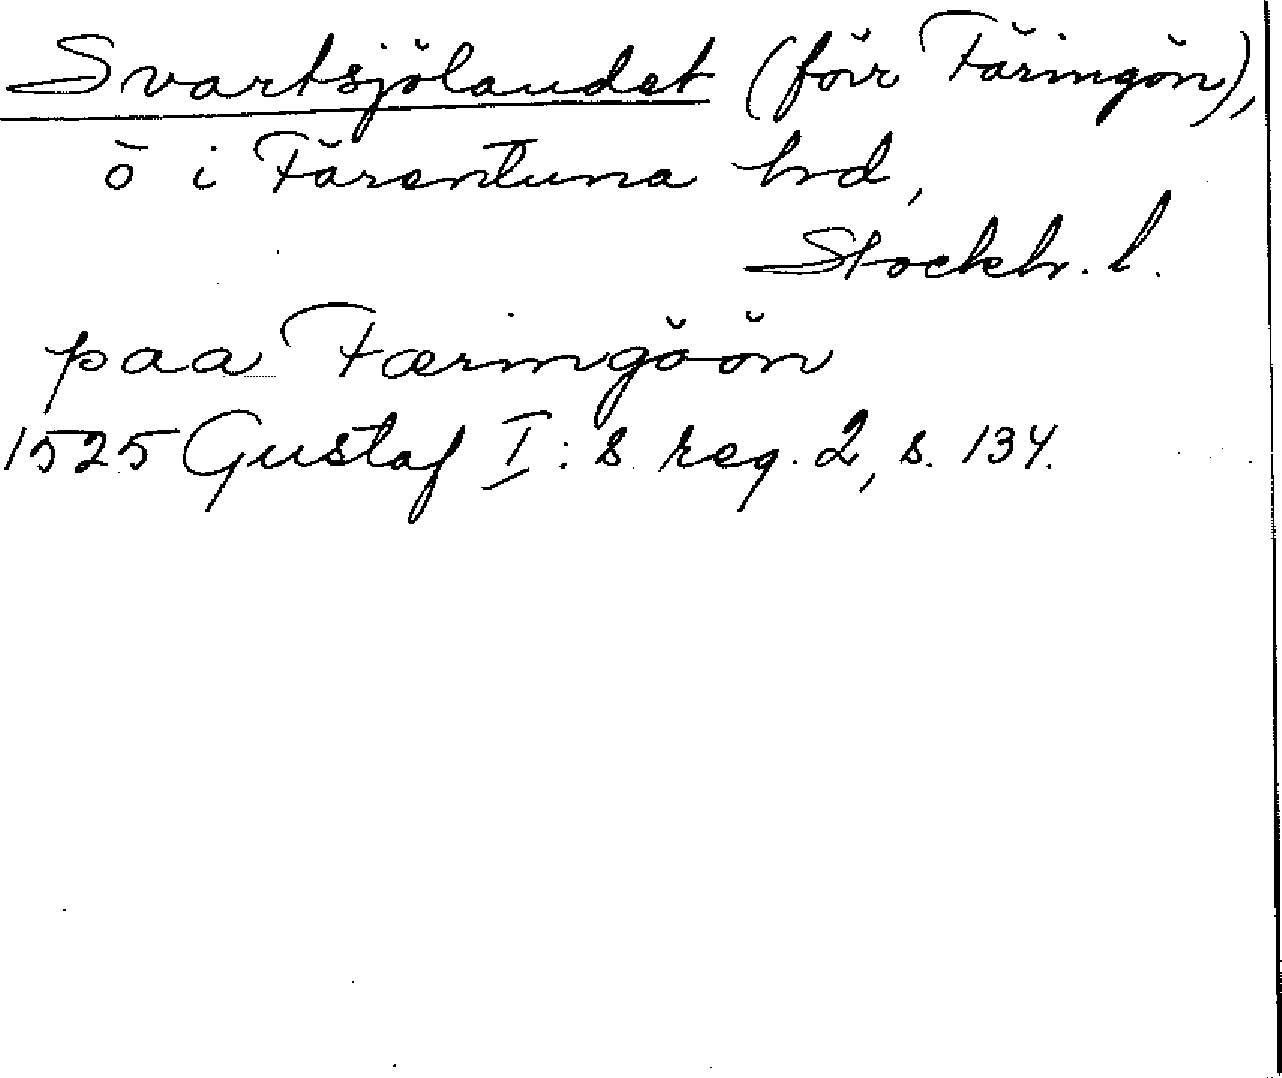 Svartsjölandet (förr Färingön),
ö i Färentuna hd,
Stockh. l.
paa Færingöön
1525 Gustaf I:s reg. 2, s. 134.